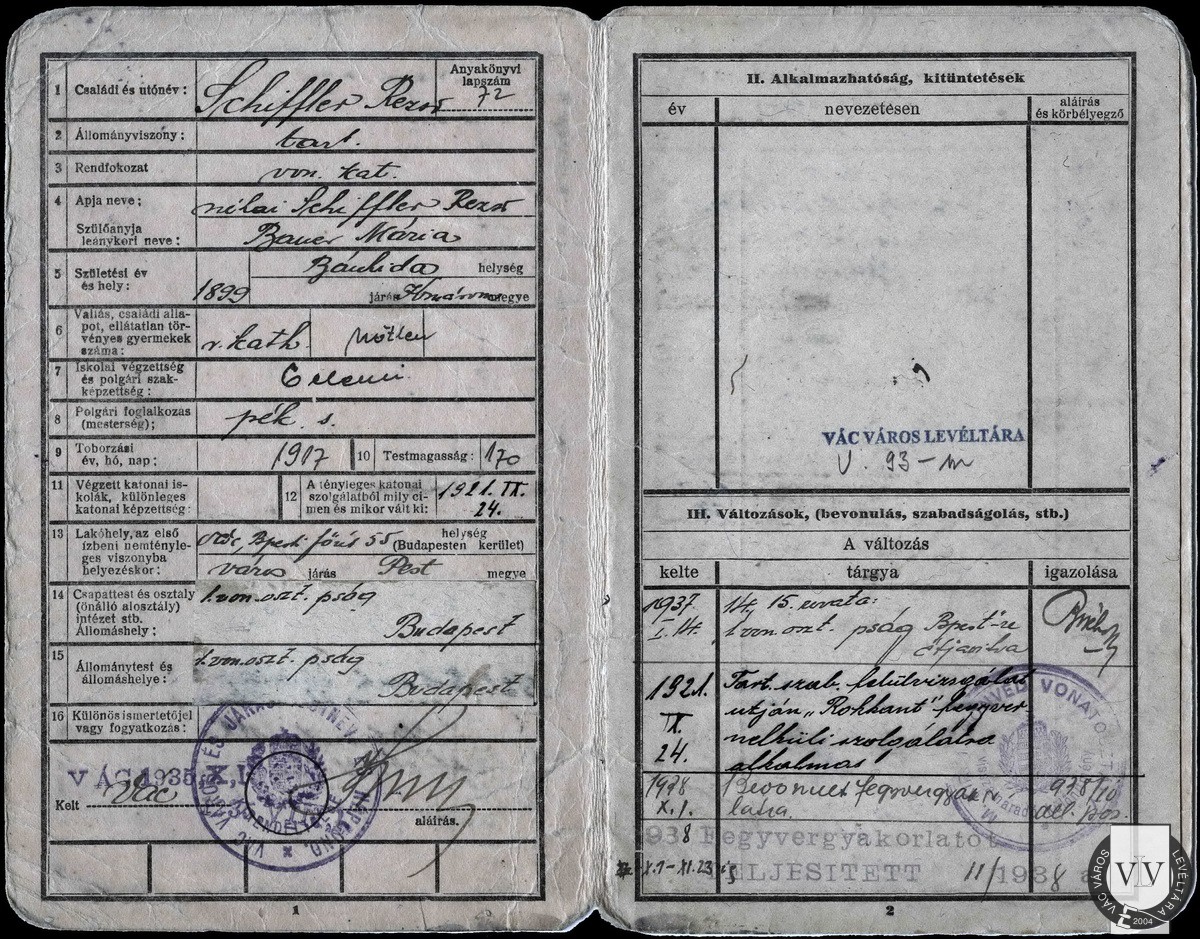 1 Családi és utónév: Schiffler Rezső
Anyakönyvi lapszám 72
2 Állományviszony: tart.
3 Rendfokozat von. kat.
4 Apja neve: néhai Schiffler Rezső
Szülőanyja leánykori neve: Bauer Mária
5 Születési év és hely: 1899 Bánhida helység
járás Komárom megye
6 Vallás, családi állapot, ellátatlan törvényes gyermekek száma: r. kath. nőtlen
7 Iskolai végzettség és polgári szakképzettség: 6 elemi
8 Polgári foglalkozás (mesterség): pék s.
9 Toborzási év, hó, nap: 1917
10 Testmagasság: 170
11 Végzett katonai iskolák, különleges katonai képzettség:
12 A tényleges katonai szolgálatból mily címen és mikor vált ki: 1921. IX. 24.
13 Lakóhely, az első ízbeni nemtényleges viszonyba helyezéskor: Vác, Bpesti főút 55 helység (Budapesten kerület)
város járás Pest megye
14 Csapattest és osztály (önálló alosztály) intézet stb. Állomáshely: 1. von. oszt. pság
Budapest
15 Állománytest és állomáshelye: 1. von. oszt. pság
Budapest
16 Különös ismertetőjel vagy fogyatkozás:
VÁC 1935. X.
Kelt Vác
aláírás.
1
II. Alkalmazhatóság, kitüntetések
év nevezetésen aláírás és körbélyegző
VÁC VÁROS LEVÉLTÁRA
V. 93-m
III. Változások, (bevonulás, szabadságolás, stb.)
A változás
kelte tárgya igazolása
1937. I. 14. 14, 15. rovata:
1. von. oszt. pság Bpest-re
átjavítva
1921. IX. 24. Tart. szab. felülvizsgálat
útján "Rokkant" fegyver
nélküli szolgálatra
alkalmas
1938 X. 1. Bevonult fegyvergyakor-
latra. 938/10
1938 Fegyvergyakorlatot
X. 1–XI. 23 ig TELJESITETT 11/1938
2
VÁC VÁROS LEVÉLTÁRA
VLV
2004